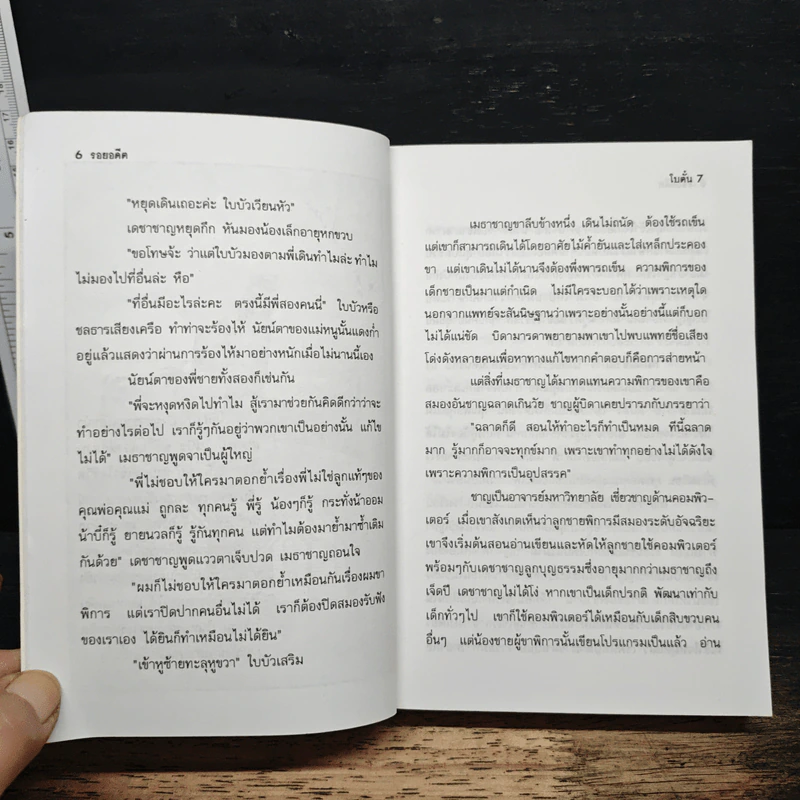 6 รอยอดีต
"หยุดเดินเถอะค่ะ ใบบัวเวียนหัว"
เดชาชาญหยุดกึก หันมองน้องเล็กอายุหกขวบ
"ขอโทษจ้ะ ว่าแต่ใบบัวมองตามพี่เดินทำไมล่ะ ทำไม
ไม่มองไปที่อื่นล่ะ หือ"
"ที่อื่นมีอะไรล่ะคะ ตรงนี้มีพี่สองคนนี่" ใบบัวหรือ
ชลธารเสียงเครือ ทำท่าจะร้องไห้ นัยน์ตาของแม่หนูนั้นแดงก่ำ
อยู่แล้วแสดงว่าผ่านการร้องไห้มาอย่างหนักเมื่อไม่นานนี้เอง
นัยน์ตาของพี่ชายทั้งสองก็เช่นกัน
"พี่จะหงุดหงิดไปทำไม สู้เรามาช่วยกันคิดดีกว่าว่าจะ
ทำอย่างไรต่อไป เราก็รู้ๆกันอยู่ว่าพวกเขาเป็นอย่างนั้น แก้ไข
ไม่ได้" เมธาชาญพูดจาเป็นผู้ใหญ่
"พี่ไม่ชอบให้ใครมาตอกย้ำเรื่องพี่ไม่ใช่ลูกแท้ๆของ
คุณพ่อคุณแม่ ถูกละ ทุกคนรู้ พี่รู้ น้องๆก็รู้ กระทั่งน้าออม
น้าบี๋ก็รู้ ยายนวลก็รู้ รู้กันทุกคน แต่ทำไมต้องมาย้ำมาซ้ำเติม
กันด้วย" เดชาชาญพูดแววตาเจ็บปวด เมธาชาญถอนใจ
"ผมก็ไม่ชอบให้ใครมาตอกย้ำเหมือนกันเรื่องผมขา
พิการ แต่เราปิดปากคนอื่นไม่ได้ เราก็ต้องปิดสมองรับฟัง
ของเราเอง ได้ยินก็ทำเหมือนไม่ได้ยิน"
"เข้าหูซ้ายทะลุหูขวา" ใบบัวเสริม
โบตั๋น 7
เมธาชาญขาลีบข้างหนึ่ง เดินไม่ถนัด ต้องใช้รถเข็น
แต่เขาก็สามารถเดินได้โดยอาศัยไม้ค้ำยันและใส่เหล็กประคอง
ขา แต่เขาเดินไม่ได้นานจึงต้องพึ่งพารถเข็น ความพิการของ
เด็กชายเป็นมาแต่กำเนิด ไม่มีใครจะบอกได้ว่าเพราะเหตุใด
นอกจากแพทย์จะสันนิษฐานว่าเพราะอย่างนั้นอย่างนี้แต่ก็บอก
ไม่ได้แน่ชัด บิดามารดาพยายามพาเขาไปพบแพทย์ชื่อเสียง
โด่งดังหลายคนเพื่อหาทางแก้ไขหากคำตอบก็คือการส่ายหน้า
แต่สิ่งที่เมธาชาญได้มาทดแทนความพิการของเขาคือ
สมองอันชาญฉลาดเกินวัย ชาญผู้บิดาเคยปรารภกับภรรยาว่า
"ฉลาดก็ดี สอนให้ทำอะไรก็ทำเป็นหมด ทีนี้ฉลาด
มาก รู้มากก็อาจจะทุกข์มาก เพราะเขาทำทุกอย่างไม่ได้ดังใจ
เพราะความพิการเป็นอุปสรรค"
ชาญเป็นอาจารย์มหาวิทยาลัย เชี่ยวชาญด้านคอมพิว-
เตอร์ เมื่อเขาสังเกตเห็นว่าลูกชายพิการมีสมองระดับอัจฉริยะ
เขาจึงเริ่มต้นสอนอ่านเขียนและหัดให้ลูกชายใช้คอมพิวเตอร์
พร้อมๆกับเดชาชาญลูกบุญธรรมซึ่งอายุมากกว่าเมธาชาญถึง
เจ็ดปี เดชาชาญไม่ได้โง่ หากเขาเป็นเด็กปรกติ พัฒนาเท่ากับ
เด็กทั่วๆไป เขาก็ใช้คอมพิวเตอร์ได้เหมือนกับเด็กสิบขวบคน
อื่นๆ แต่น้องชายผู้ขาพิการนั้นเขียนโปรแกรมเป็นแล้ว อ่าน